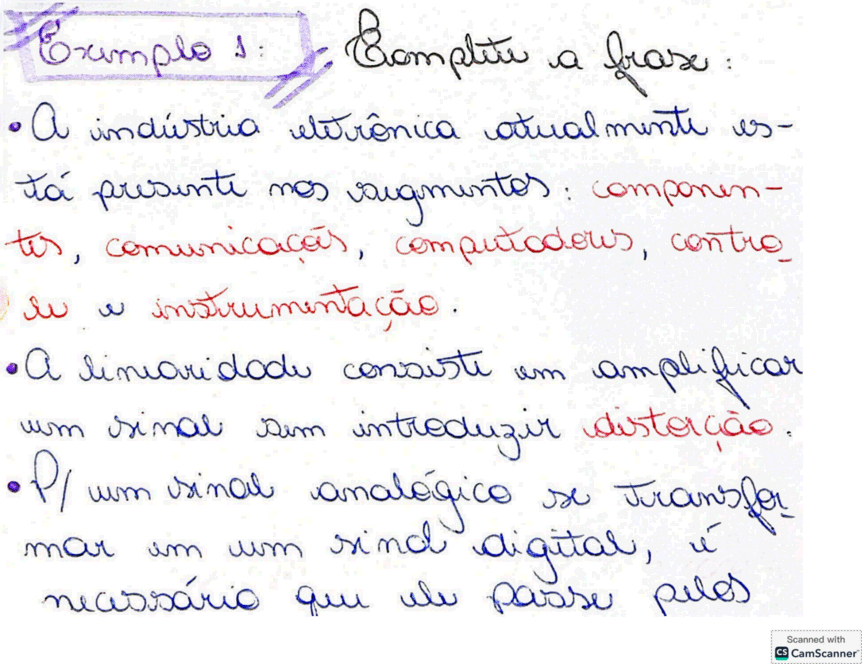 Exemplo 1: Complete a frase:
• A indústria eletrônica atualmente es-
tá presente nos segmentos: componen-
tes, comunicações, computadores, contro-
le e instrumentação.
• A linearidade consiste em amplificar
um sinal sem introduzir distorção.
• P/ um sinal analógico se transfor-
mar em um sinal digital, é
necessário que ele passe pelos
Scanned with
CS CamScanner